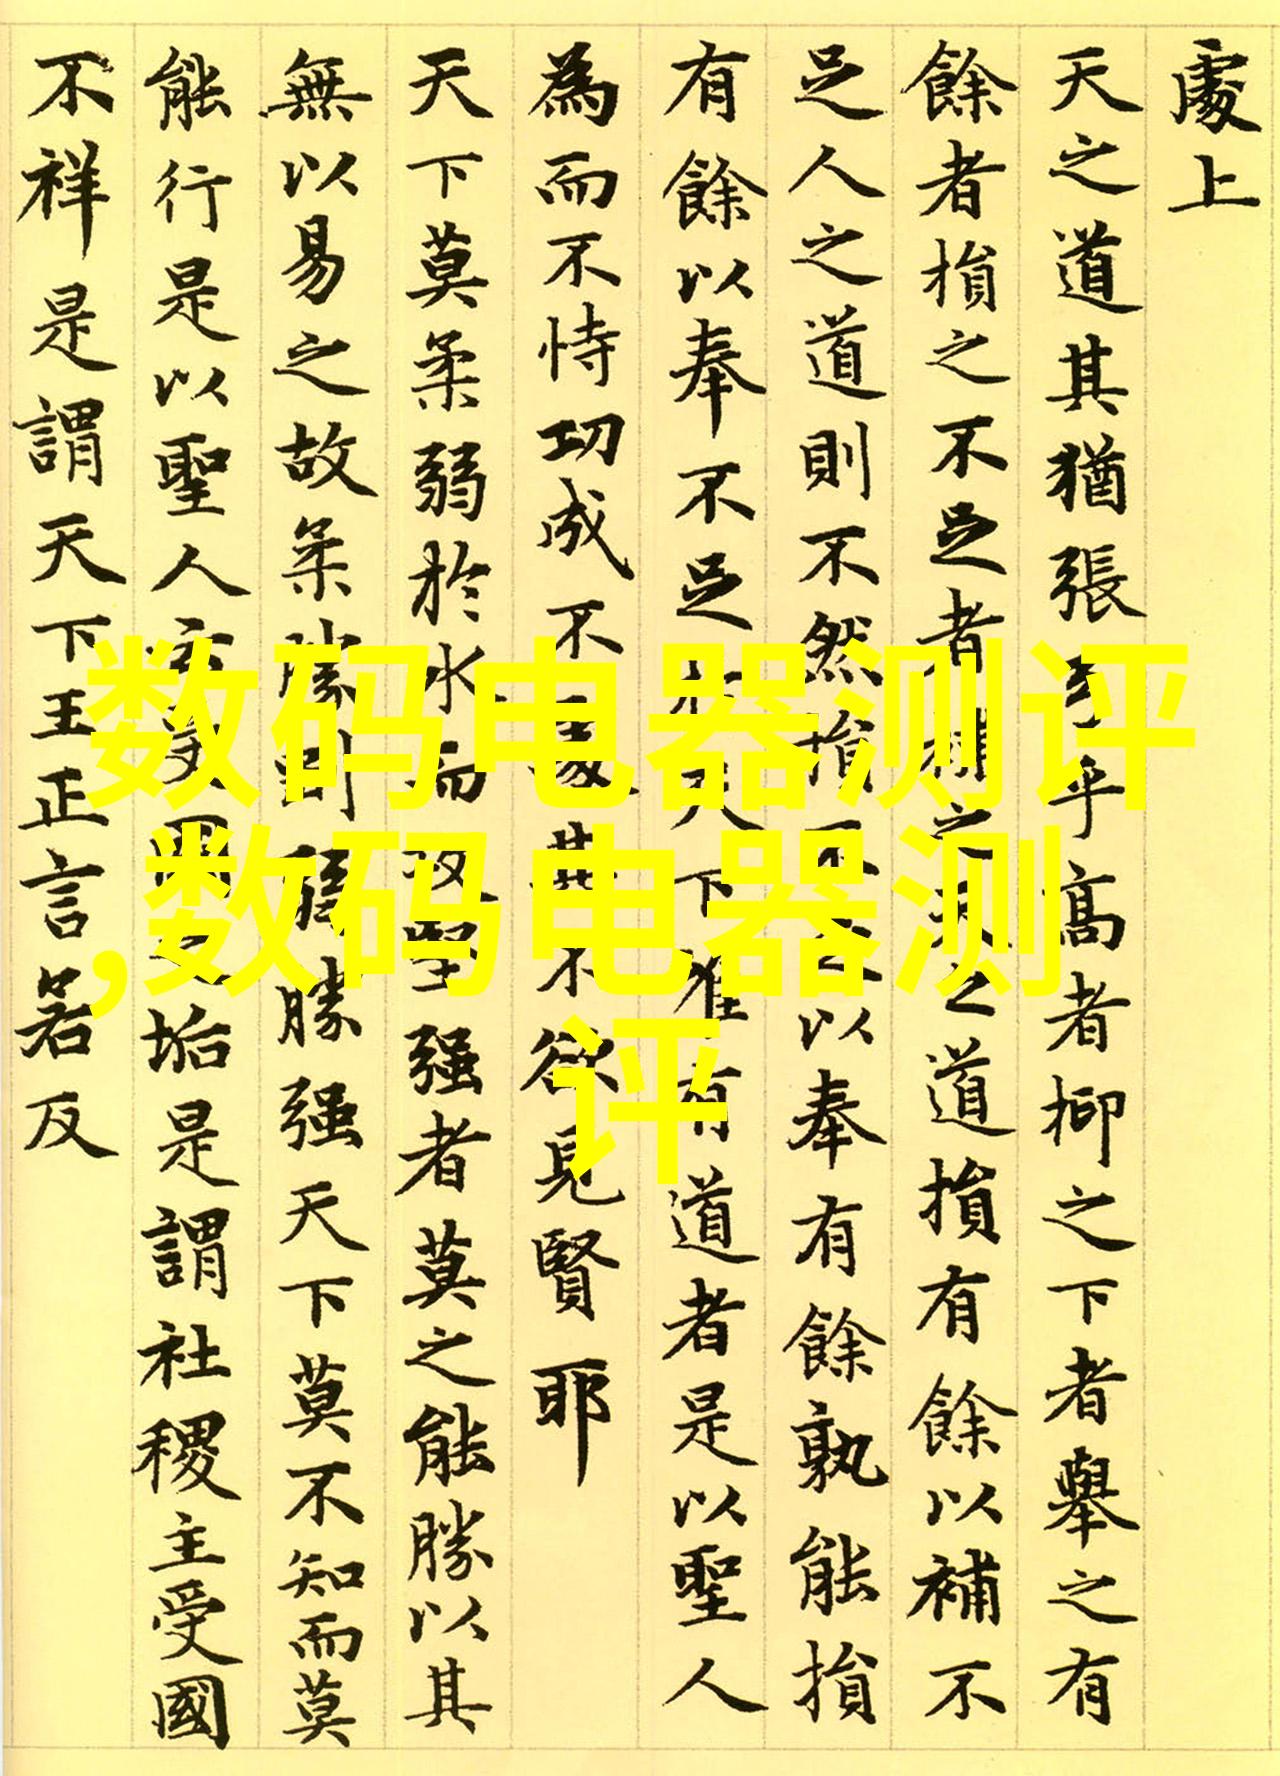 處上
天之道其猶張弓乎高者抑之下者舉之有
餘者損之不足者補之天之道損有餘以補不
足人之道則不然損不足以奉有餘孰能損
有餘以奉不足於天下唯有道者是以聖人
為而不恃功成不處其不欲見賢耶
天下莫柔弱於水而攻堅强者莫之能勝以其
無以易之故柔勝剛弱勝强天下莫不知而莫
能行是以聖人云受國之垢是謂社稷主受國
不祥是謂天下王正言若反
数码电器测评
,数码电器测
评